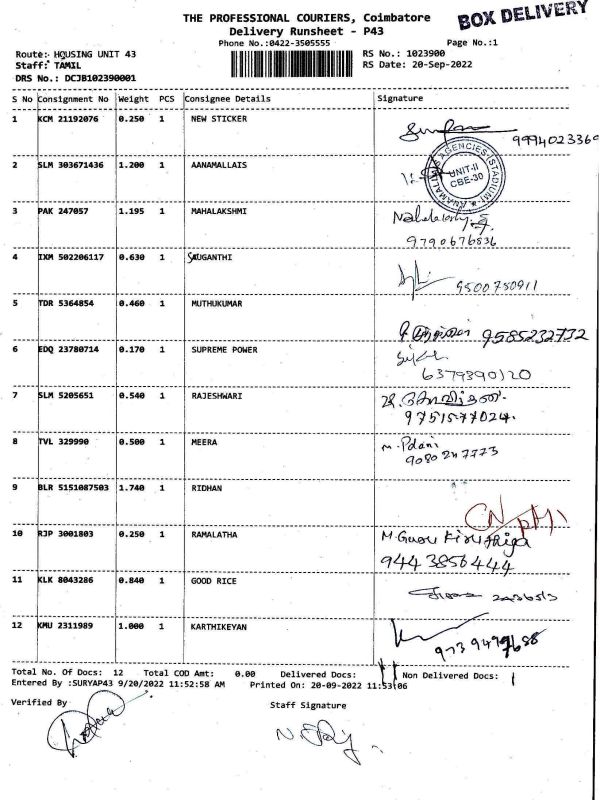 THE PROFESSIONAL COURIERS, Coimbatore
BOX DELIVERY
Delivery Runsheet - P43
Phone No.:0422-3505555
Page No.:1
Route: HOUSING UNIT 43
RS No.: 1023900
Staff: TAMIL
RS Date: 20-Sep-2022
DRS No.: DCJB102390001
S No Consignment No Weight PCS Consignee Details Signature
1 KCM 21192076 0.250 1 NEW STICKER
2 SLM 303671436 1.200 1 AANAMALLAIS
ANAMALLAIS AGENCIES (STADIUM)
UNIT-II
CBE-30
3 PAK 247057 1.195 1 MAHALAKSHMI
9790676836
4 IXM 502206117 0.630 1 SAUGANTHI
9500750911
5 TDR 5364854 0.460 1 MUTHUKUMAR
9585232732
6 EDQ 23780714 0.170 1 SUPREME POWER
6379390120
7 SLM 5205651 0.540 1 RAJESHWARI
9751577024.
8 TVL 329990 0.500 1 MEERA
9080247773
9 BLR 5151087503 1.740 1 RIDHAN
10 RJP 3001803 0.250 1 RAMALATHA
9443856444
11 KLK 8043286 0.840 1 GOOD RICE
12 KMU 2311989 1.000 1 KARTHIKEYAN
Total No. Of Docs: 12 Total COD Amt: 0.00 Delivered Docs: 11 Non Delivered Docs: 1
Entered By :SURYAP43 9/20/2022 11:52:58 AM Printed On: 20-09-2022 11:53:06
Verified By
Staff Signature